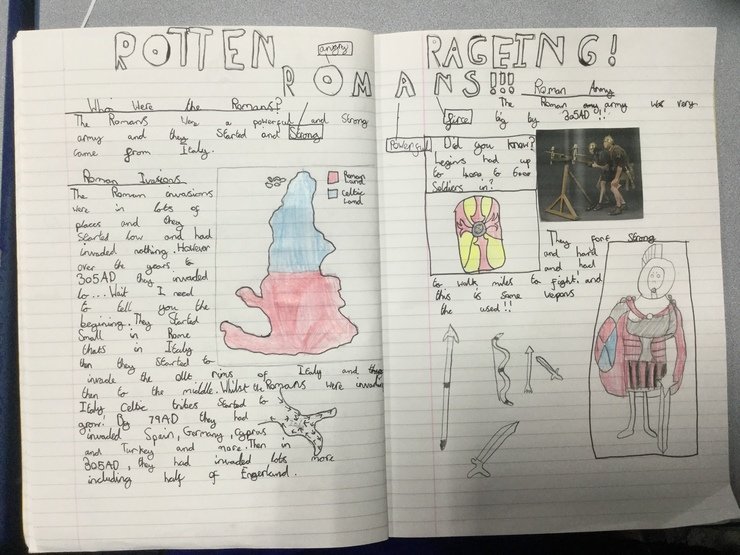 ROTTEN RAGEING!
angry
ROMANS!!!
Who Were the Romans?
The Romans Were a powerful and Strong
army and they Started and Strong
came from Italy.
Roman Invasions
The Roman invasions
were in lots of
places and they
Started low and had
invaded nothing. However
over the years to
305AD they invaded
to... Wait I need
to tell you the
begining. They Started
Small in Rome
thats in Italy
then they Started to
invade the of Italy and
then to the middle. Whilst the Romans were invading
Italy Celtic tribes Started to
grow. By 79AD they had
invaded Spain, Germany, Cyprus
and Turkey and more. Then in
305AD, they had invaded lots more
including half of Engerland.
Roman Land
Celtic Land
Roman Army
The Roman army was very
big by 305AD!!
firce
Powerful
Did you know?
legins had up
to 4000 to 6000
Soldiers in?
They Strong
and hard
and had
to walk miles to fight, and
this is some
the used!!